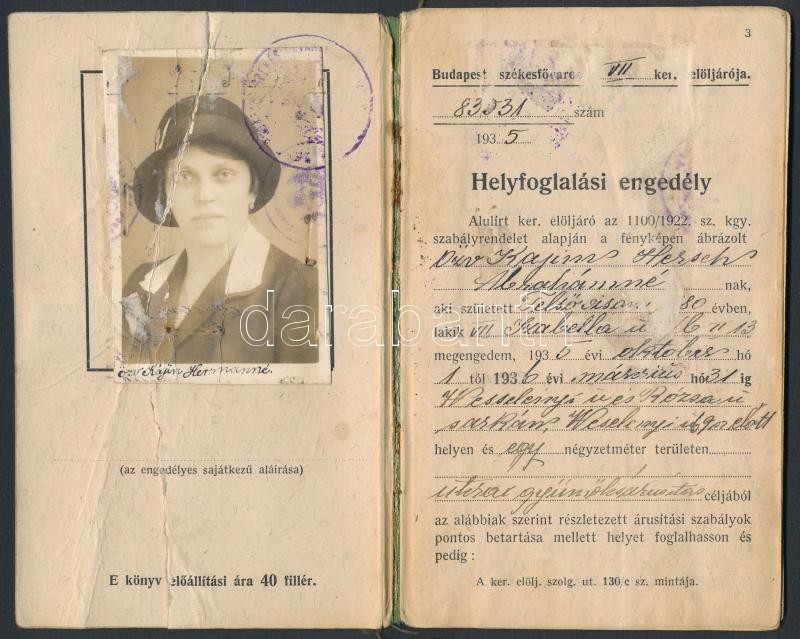 özv Kajin Hermanné.
(az engedélyes sajátkezű aláírása)
E könyv előállítási ára 40 fillér.
3
Budapest székesfőváros VII ker. elöljárója.
83531 szám
1935
Helyfoglalási engedély
Alulírt ker. elöljáró az 1100/1922. sz. kgy.
szabályrendelet alapján a fényképen ábrázolt
özv Kajin Hersch
Abrahámné nak,
aki született Felsővisón 80 évben,
lakik VII Izabella u 16 II 13
megengedem, 1935 évi október hó
1 től 1936 évi március hó 31 ig
Wesselényi u és Rózsa u
sarkán, Weselényi u előtt
helyen és egy négyzetméter területen
utcai gyümölcsárusitás céljából
az alábbiak szerint részletezett árusítási szabályok
pontos betartása mellett helyet foglalhasson és
pedig:
A ker. elölj. szolg. ut. 130/e sz. mintája.
darabanth